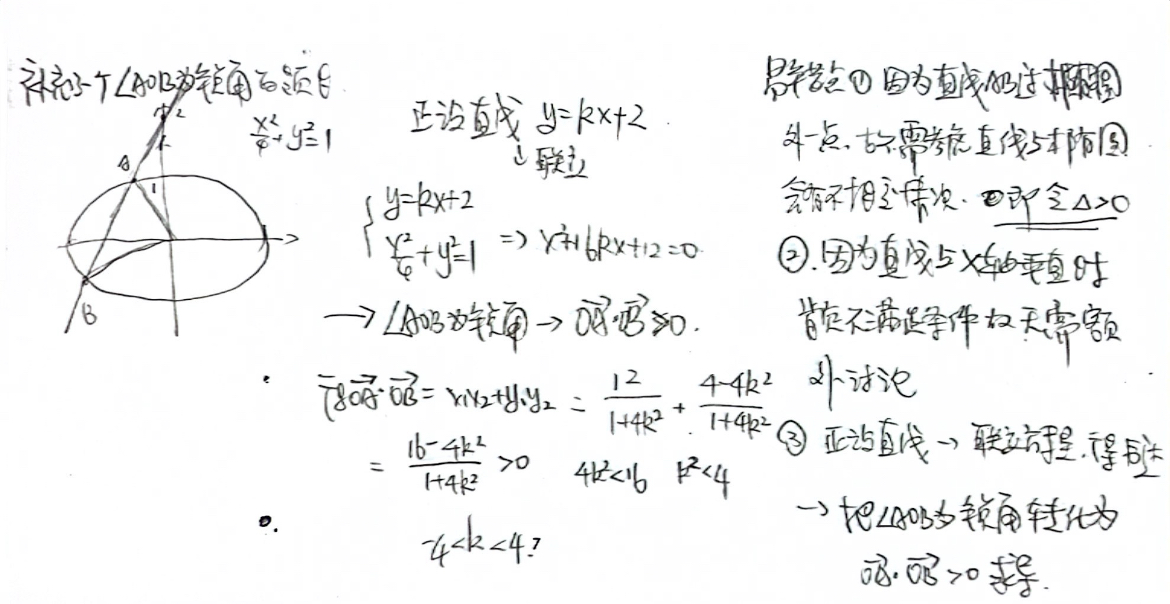 补充一个∠AOB为锐角的题目
x²/4+y²=1
2
A
1
B
正设直线 y=kx+2
↓联立
{y=kx+2
x²/4+y²=1 => x²+16kx+12=0
→∠AOB为锐角→OA·OB>0.
得OA·OB=x₁x₂+y₁y₂=12/(1+4k²)+(4-4k²)/(1+4k²)
=(16-4k²)/(1+4k²)>0 4k²<16 k²<4
-4<k<4?
易错点① 因为直线经过椭圆
外一点,故需考虑直线与椭圆
会有不相交情况. 即令Δ>0
②.因为直线与X轴垂直时
肯定不满足条件故无需额
外讨论
③ 正设直线→联立方程,得韦达
→把∠AOB为锐角转化为
OA·OB>0求导.